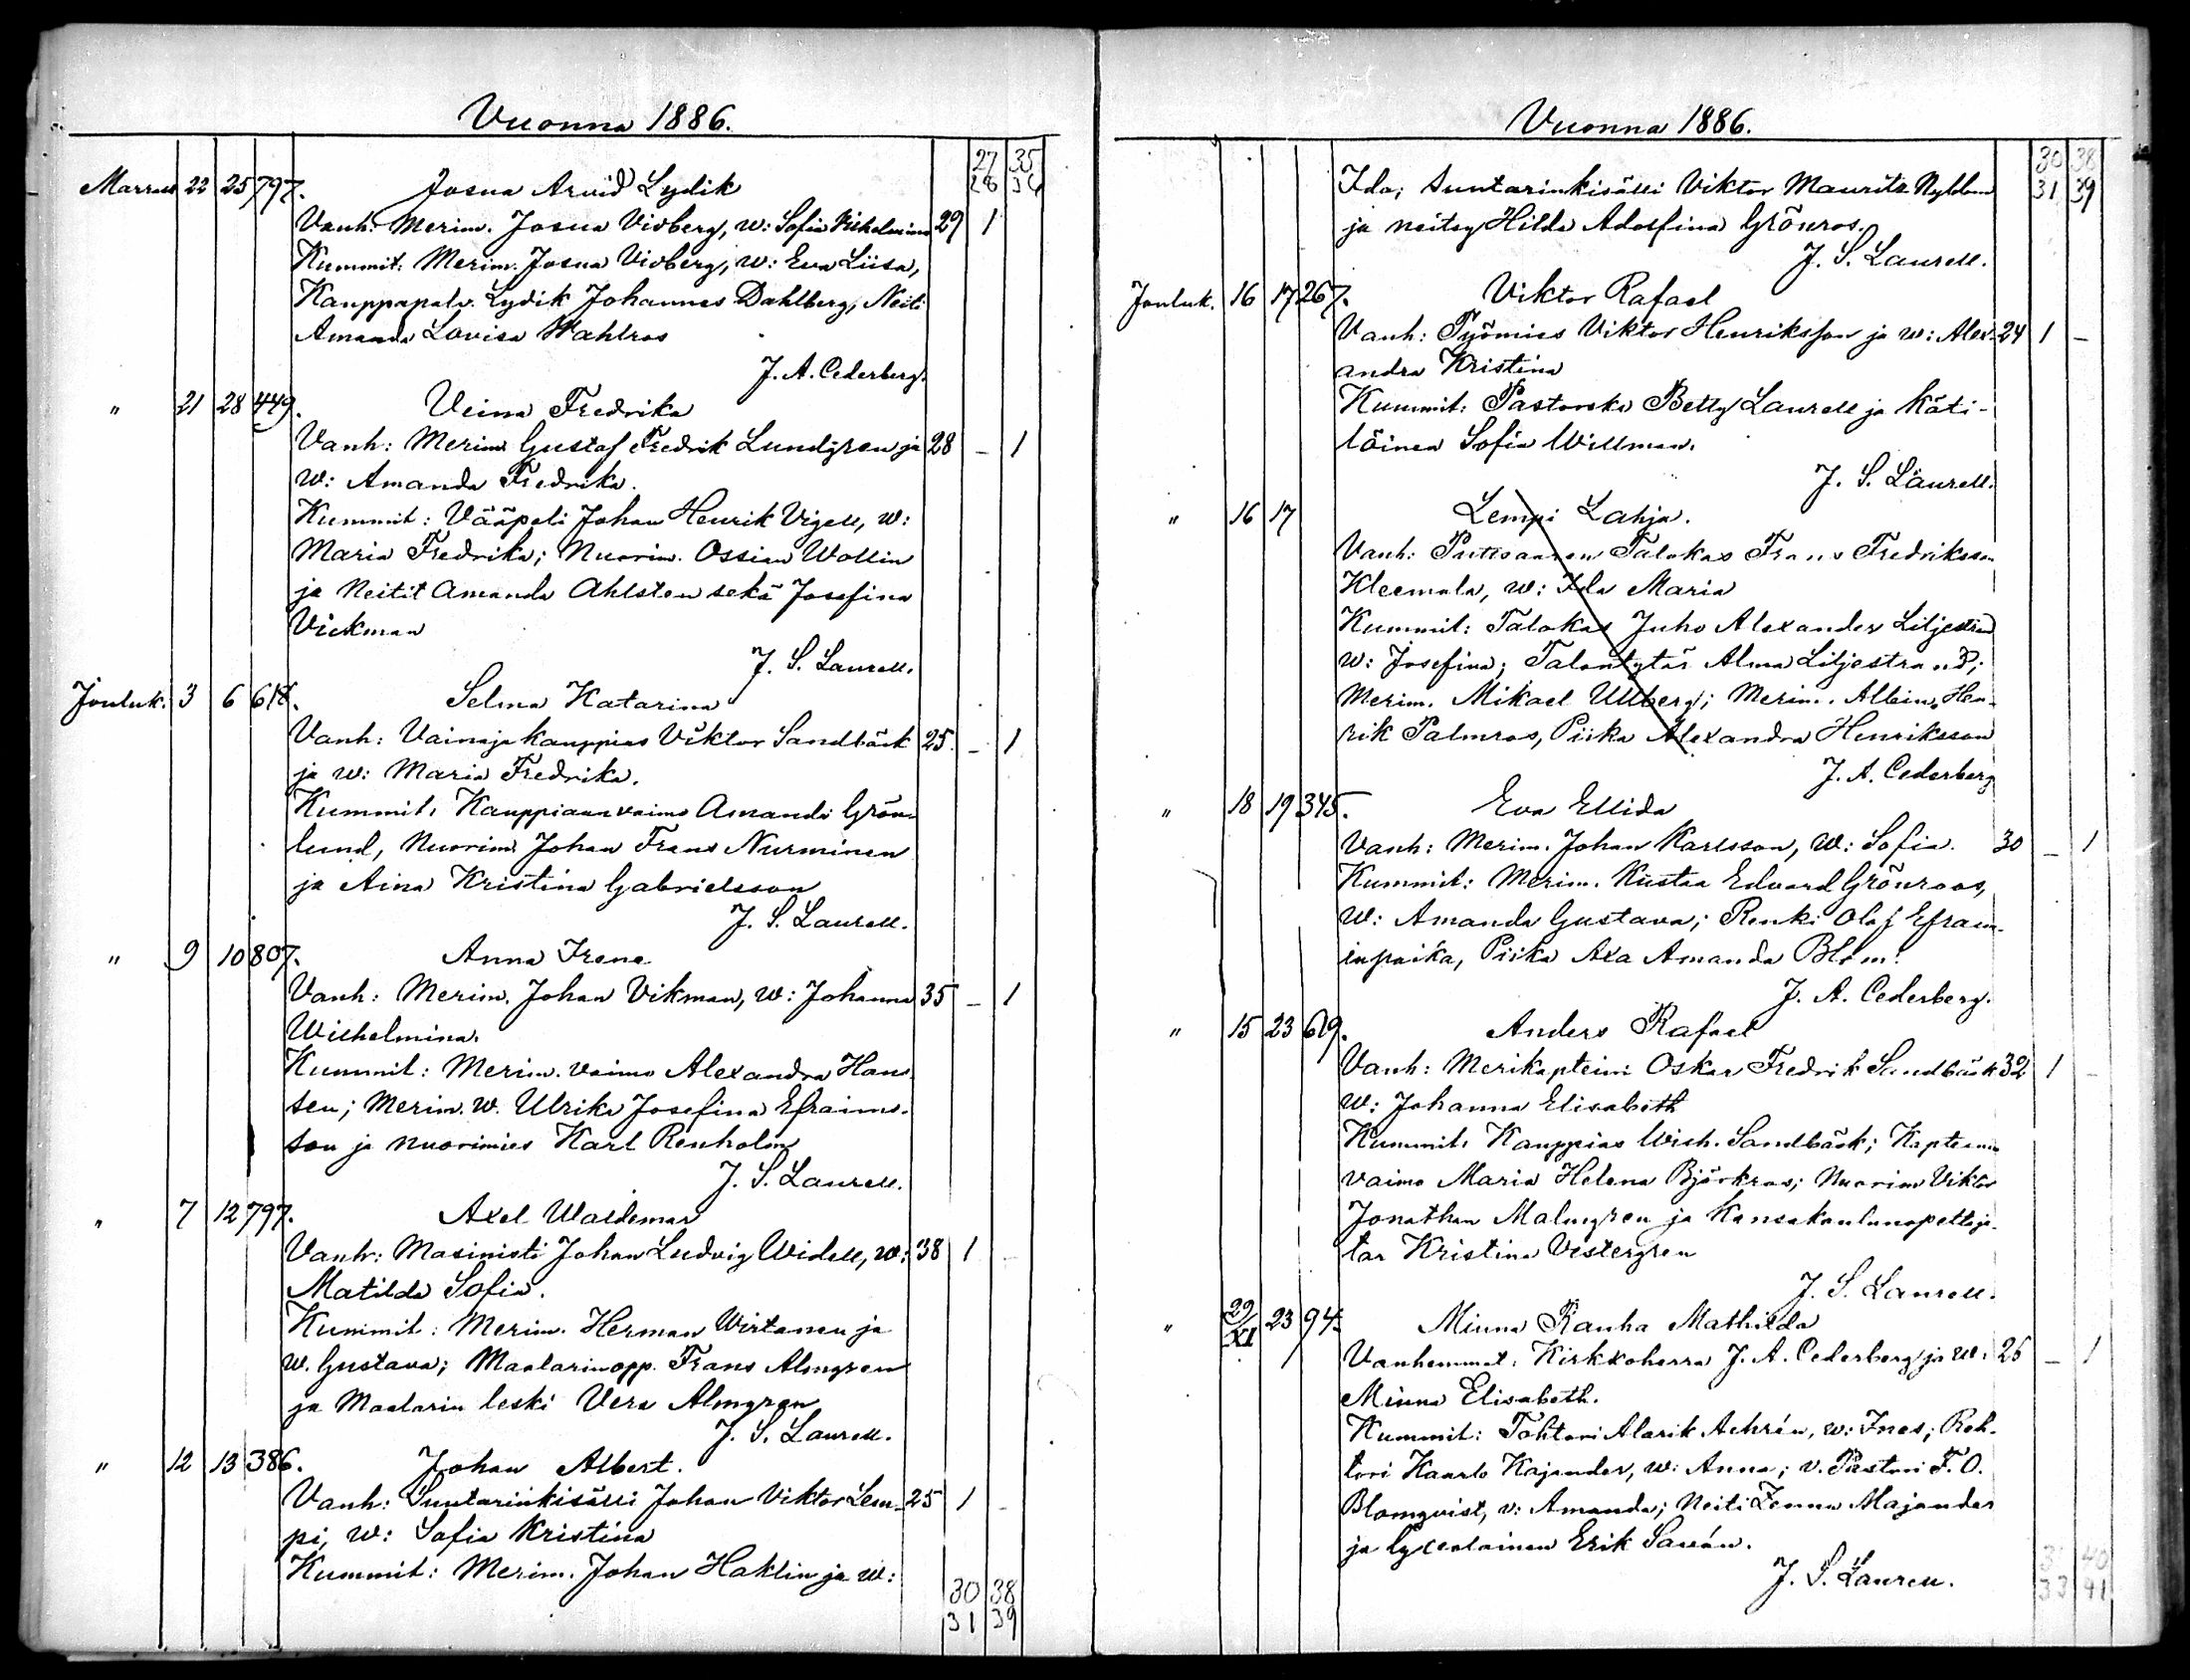 Vuonna 1886.
27 35
28 36
Marrask 22 25 797. Josua Arvid Lydik
Vanh: Merim. Josua Vidberg, w: Sofia Vilhelmina 29 1
Kummit: Merim. Josua Vidberg, w: Eva Liisa,
Kauppapalv. Lydik Johannes Dahlberg, Neiti
Amanda Lovisa Wahlros
J. A. Cederberg.
" 21 28 449. Veina Fredrika
Vanh: Merim. Gustaf Fredrik Lundgren ja 28 – 1
W: Amanda Fredrika.
Kummit: Vääpeli Johan Henrik Vigell, w:
Maria Fredrika; Nuorim. Ossian Wollin
ja Neitit Amanda Ahlsten sekä Josefina
Vickman
J. S. Laurell.
Jouluk. 3 6 618. Selma Katarina
Vanh: Vainaja kauppias Viktor Sandbäck 25. – 1
ja w: Maria Fredrika.
Kummit: Kauppiaanvaimo Amanda Grön-
lund, Nuorim. Johan Frans Nurminen
ja Aina Kristina Gabrielsson
J. S. Laurell.
" 9 10 807. Anna Irene
Vanh: Merim. Johan Vikman, w: Johanna 35 – 1
Wilhelmina.
Kummit: Merim. vaimo Alexandra Han-
sen; Merim. W. Ulrika Josefina Efraims-
son ja nuorimies Karl Renholm
J. S. Laurell.
" 7 12 797. Axel Waldemar
Vanh: Masinisti Johan Ludvig Widell, w: 38 1 –
Matilda Sofia.
Kummit: Merim. Herman Wirtanen ja
W. Gustava; Maalarinopp. Frans Almgren
ja Maalarin leski Vera Almgren
J. S. Laurell.
" 12 13 386. Johan Albert.
Vanh: Suutarinkisälli Johan Viktor Lem- 25 1 –
pi, w: Sofia Kristina
Kummit: Merim. Johan Haklin ja w:
30 38
31 39
Vuonna 1886.
30 38
31 39
Ida; Suutarinkisälli Viktor Maurits Nyblom
ja neitsy Hilda Adolfina Grönros.
J. S. Laurell.
Jouluk. 16 17 267. Viktor Rafael
Vanh: Työmies Viktor Henriksson ja w: Alex- 24 1 –
andra Kristina
Kummit: Pastorska Betty Laurell ja Käti-
löinen Sofia Willman.
J. S. Laurell.
" 16 17 Lempi Lahja.
Vanh: Talokas Frans Fredriksson
Kleemala, w: Ida Maria
Kummit: Talokas Juho Alexander Liljestrand
w: Josefina; Talontytär Alma Liljestrand;
Merim. Mikael Ullberg; Merim. Albin Hen-
rik Palmros, Piika Alexandra Henriksson
J. A. Cederberg
" 18 19 345. Eva Ellida
Vanh: Merim. Johan Karlsson, W: Sofia. 30 – 1
Kummit: Merim. Kustaa Edvard Grönroos,
W: Amanda Gustava; Renki Olaf Efraim-
inpoika, Piika Axa Amanda Blom.
J. A. Cederberg.
" 15 23 619. Anders Rafael
Vanh: Merikapteini Oskar Fredrik Sandbäck 32 1 –
W: Johanna Elisabeth
Kummit: Kauppias Wilh. Sandbäck; Kapteinin
vaimo Maria Helena Björkros; Nuorim. Viktor
Jonathan Malmgren ja Kansakoulunopettaja-
tar Kristina Vestergren
J. S. Laurell.
" 29/XI 23 94. Minna Rauha Mathilda
Vanhemmat: Kirkkoherra J. A. Cederberg ja W: 26 – 1
Minna Elisabeth.
Kummit: Tohtori Alarik Achrén, w: Ines; Reh-
tori Kaarlo Kajander, w: Anna; v. Pastori F. O.
Blomqvist, v: Amanda; Neiti Jenna Majander
ja lycealainen Erik Savén.
J. S. Laurell.
40
33 41